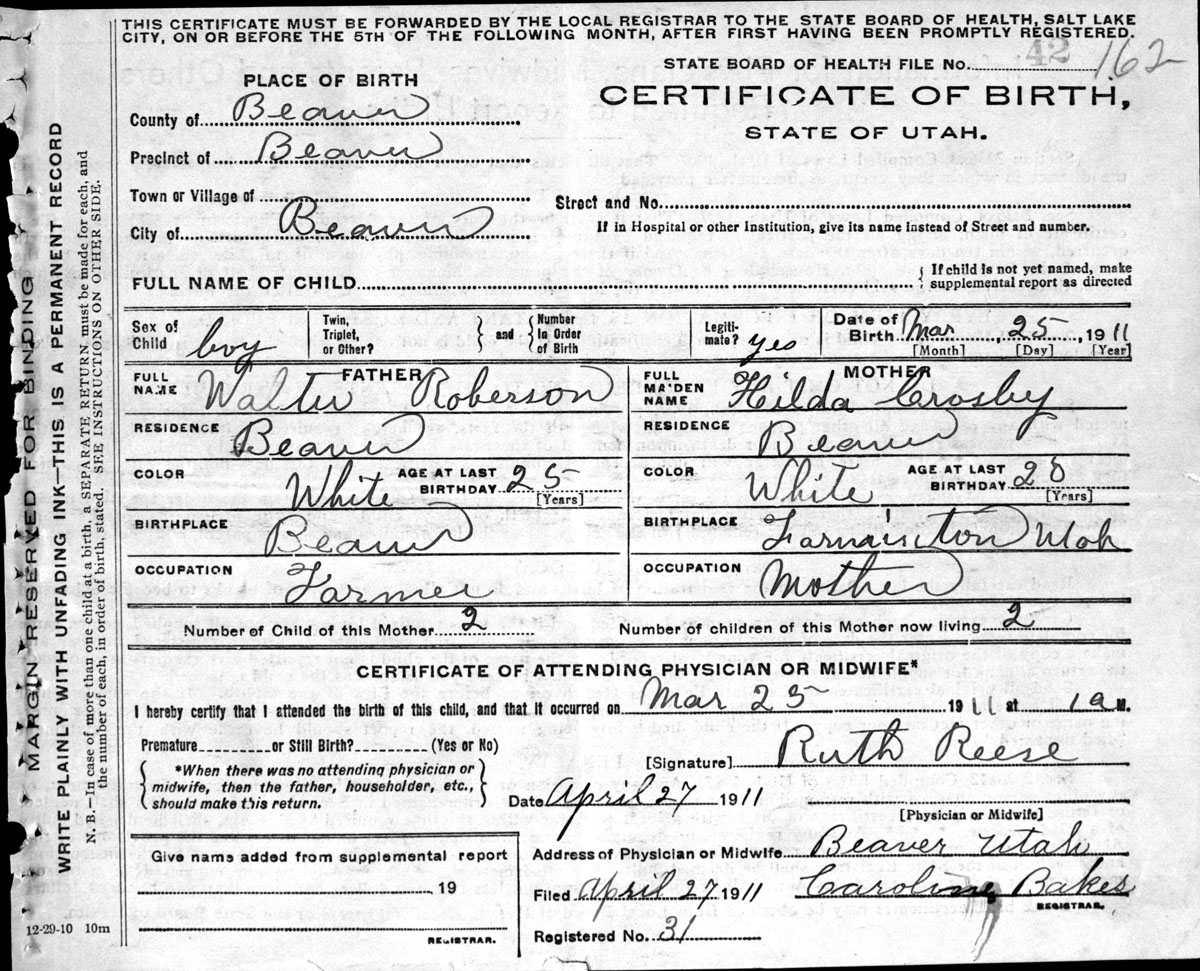 THIS CERTIFICATE MUST BE FORWARDED BY THE LOCAL REGISTRAR TO THE STATE BOARD OF HEALTH, SALT LAKE
CITY, ON OR BEFORE THE 5TH OF THE FOLLOWING MONTH, AFTER FIRST HAVING BEEN PROMPTLY REGISTERED.
42
STATE BOARD OF HEALTH FILE No. 162
PLACE OF BIRTH
CERTIFICATE OF BIRTH,
STATE OF UTAH.
County of Beaver
Precinct of Beaver
Town or Village of
Street and No.
City of Beaver
If in Hospital or other Institution, give its name instead of Street and number.
FULL NAME OF CHILD
{ If child is not yet named, make
supplemental report as directed
Sex of Child boy
Twin, Triplet, or Other?
} and { Number in Order of Birth
Legiti-mate? yes
Date of Birth Mar, 25, 1911
[Month] [Day] [Year]
FATHER
FULL NAME Walter Roberson
MOTHER
FULL MAIDEN NAME Hilda Crosby
RESIDENCE Beaver
RESIDENCE Beaver
COLOR White AGE AT LAST BIRTHDAY 25 [Years]
COLOR White AGE AT LAST BIRTHDAY 20 [Years]
BIRTHPLACE Beaver
BIRTHPLACE Farmington Utah
OCCUPATION Farmer
OCCUPATION Mother
Number of Child of this Mother 2
Number of children of this Mother now living 2
CERTIFICATE OF ATTENDING PHYSICIAN OR MIDWIFE*
I hereby certify that I attended the birth of this child, and that it occurred on Mar 25 1911 at 1 a M.
Premature or Still Birth? (Yes or No)
[Signature] Ruth Reese
{ *When there was no attending physician or
midwife, then the father, householder, etc.,
should make this return. }
Date April 27 1911
[Physician or Midwife]
Give name added from supplemental report
19
REGISTRAR.
Address of Physician or Midwife Beaver Utah
Filed April 27 1911 Caroline Bakes
REGISTRAR.
Registered No. 31
12-29-10 10m
MARGIN RESERVED FOR BINDING
WRITE PLAINLY WITH UNFADING INK—THIS IS A PERMANENT RECORD
N. B.—In case of more than one child at a birth, a SEPARATE RETURN must be made for each, and
the number of each, in order of birth, stated. SEE INSTRUCTIONS ON OTHER SIDE.